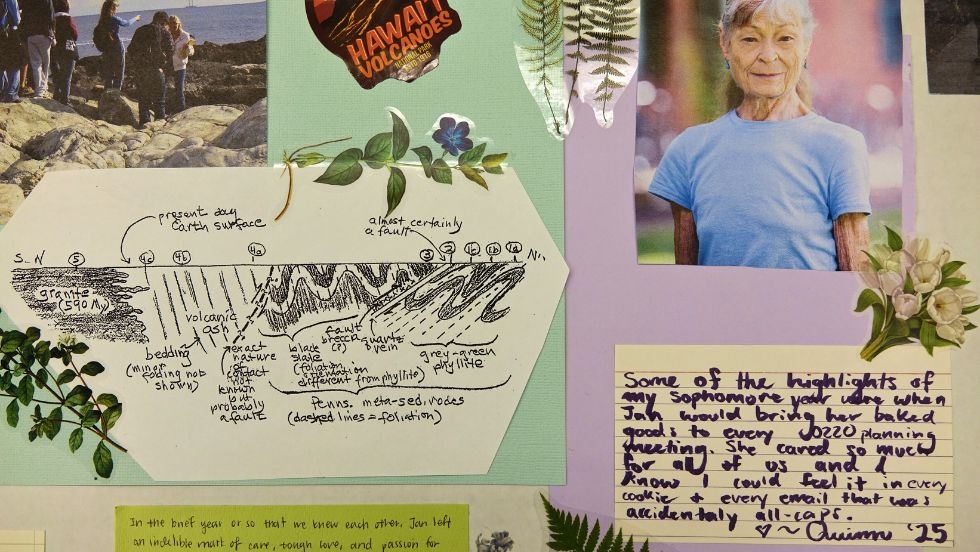 HAWAI'I
VOLCANOES
present day
Earth surface
almost certainly
a fault
S
N
5
4c
4b
4a
3
2
1c
1b
1a
N
granite
(590 My)
volcanic
ash
bedding
(minor
folding not
shown)
exact
nature
of
contact
not
known
but
probably
a fault
black
slate
(foliation
orientation
different from phyllite)
fault
breccia
(?)
quartz
vein
grey-green
phyllite
Penns. meta-sed. rocks
(dashed lines = foliation)
Some of the highlights of
my sophomore year were when
Jan would bring her baked
goods to every JOZZO planning
meeting. She cared so much
for all of us and I
know I could feel it in every
cookie + every email that was
accidentaly all-caps.
♡ ~ Quinn '25
In the brief year or so that we knew each other, Jan left
an indelible mark of care, tough love, and passion for